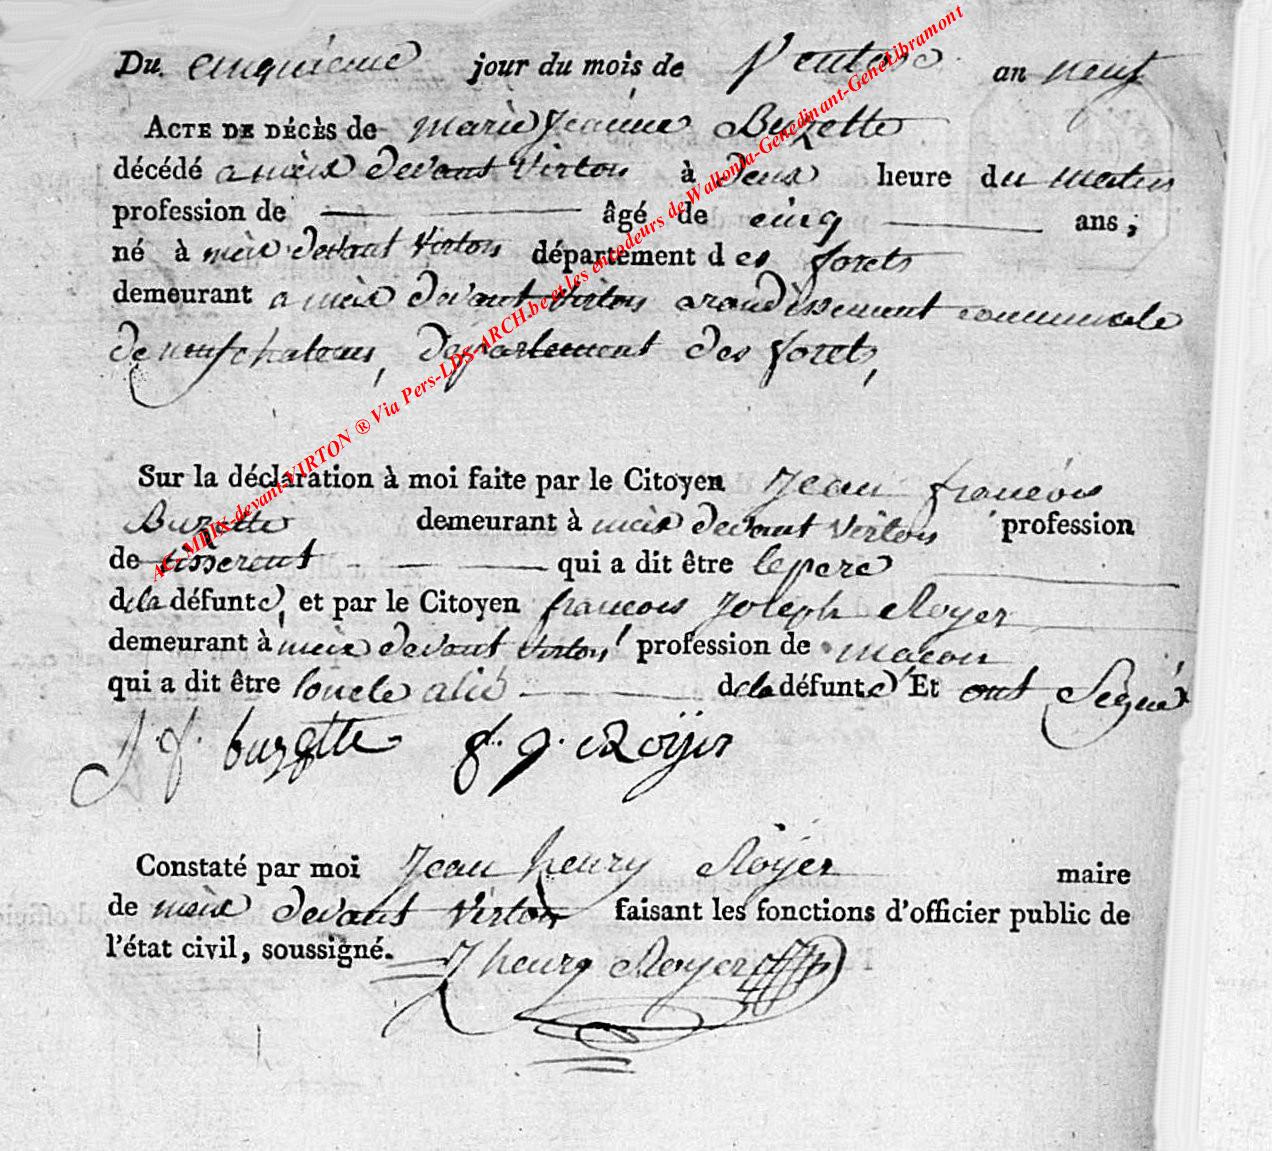 Du cinquieme jour du mois de Ventose an neuf
ACTE DE DÉCÈS de marie Jeanne Buzette
décédé a meix devant virton à deux heure du matin
profession de — âgé de cinq — ans,
né à meix devant virton département des forets
demeurant a meix devant virton arondissement communale
de neufchateau, département des forets,
Sur la déclaration à moi faite par le Citoyen Jean françois
Buzette demeurant à meix devant virton profession
de tisserant — — — qui a dit être le pere
dela défunte, et par le Citoyen françois Joseph Royer
demeurant à meix devant virton profession de maçon
qui a dit être loncle alié — dela défunte Et ont Segné
J. f. buzette f. J. Roijer
Constaté par moi Jean henry Royer maire
de meix devant virton faisant les fonctions d'officier public de
l'état civil, soussigné. J henry Royer
AC- MEIX-devant-VIRTON ® Via Pers-LDS-ARCH.be et les encodeurs de Wallonia-Genedinant-GeneLibramont